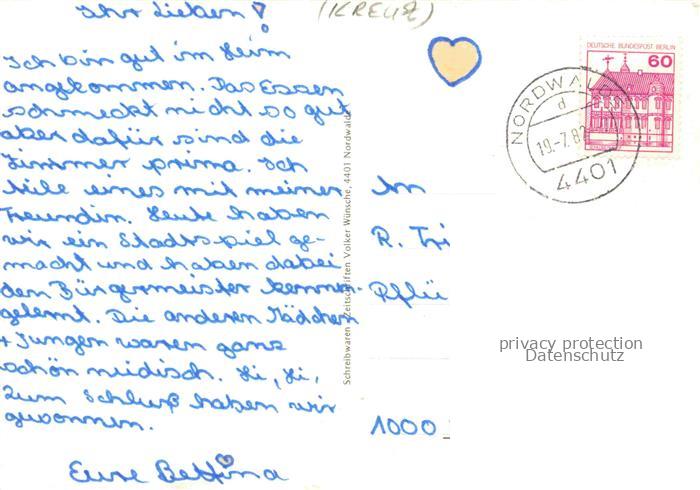 Ihr Lieben!
(KREUZ)
Ich bin gut im Heim
angekommen. Das Essen
schmeckt nicht so gut
aber dafür sind die
Zimmer prima. Ich
teile eines mit meiner
Freundin. Heute haben
wir ein Stadtspiel ge-
macht und haben dabei
den Bürgermeister kennen-
gelernt. Die anderen Mädchen
+ Jungen waren ganz
schön neidisch. Hi, Hi,
Zum Schluß haben wir
gewonnen.
Eure Bettina
Schreibwaren Zeitschriften Volker Wünsche, 4401 Nordwalde
DEUTSCHE BUNDESPOST BERLIN
60
NORDWALDE
d
19.-7.82
4401
An
R. Tri
Pflü
1000
privacy protection
Datenschutz